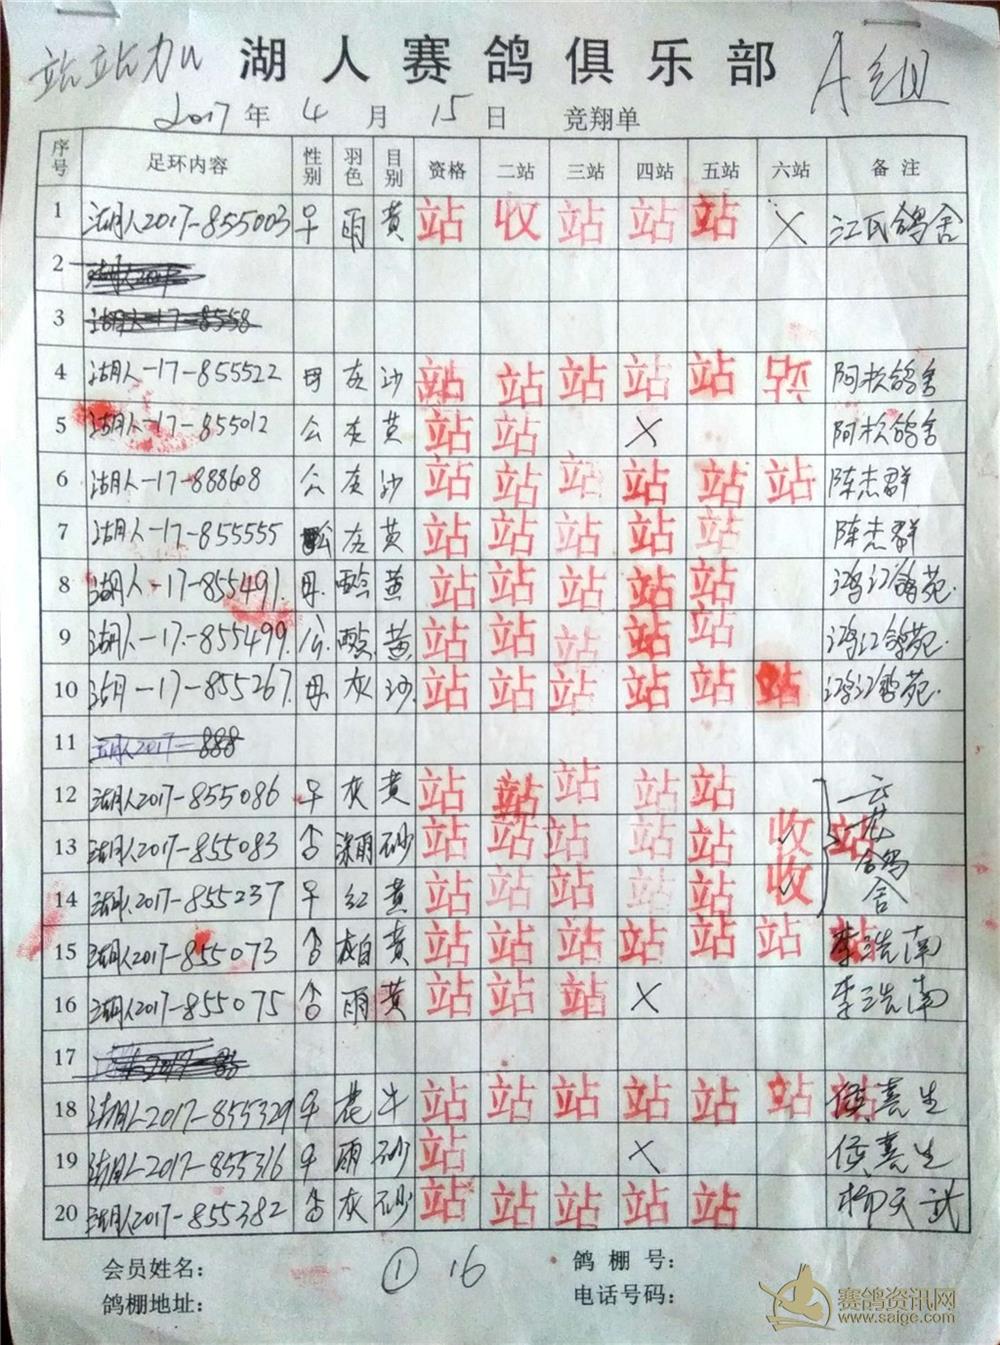 站站加 湖人赛鸽俱乐部 A组
2017年 4月 15日 竞翔单
序号 足环内容 性别 羽色 目别 资格 二站 三站 四站 五站 六站 备注
1 湖人2017-855003 早 雨 黄 站 收 站 站 站 × 江氏鸽舍
2 湖人2017
3 湖人-17-8558
4 湖人-17-855522 母 灰 沙 站 站 站 站 站 阿松鸽舍
5 湖人-17-855012 公 灰 黄 站 站 × 阿松鸽舍
6 湖人-17-888608 公 灰 沙 站 站 站 站 站 站 陈杰群
7 湖人-17-855555 公 灰 黄 站 站 站 站 站 陈杰群
8 湖人-17-855491. 母. 黄 站 站 站 站 站 鸿江鸽苑.
9 湖人-17-855499. 公. 黄 站 站 站 站 站 鸿江鸽苑.
10 湖人-17-855267. 母 灰 沙 站 站 站 站 站 站 鸿江鸽苑.
11 2017-888
12 湖人2017-855086 早 灰 黄 站 站 站 站 站 云
13 湖人2017-855083 深雨 砂 站 站 站 站 站 收 站
14 湖人2017-855237 早 红 黄 站 站 站 站 站 收 鸽舍
15 湖人2017-855073 灰白 黄 站 站 站 站 站 站 站 李浩南
16 湖人2017-855075 雨 黄 站 站 站 × 李浩南
17 2017-88
18 湖人2017-855329 早 花 牛 站 站 站 站 站 站 站 侯嘉生
19 湖人2017-855316 早 雨 砂 站 × 侯嘉生
20 湖人2017-855382 灰 砂 站 站 站 站 站 柳天武
会员姓名: ① 16 鸽棚号:
鸽棚地址: 电话号码:
赛鸽资讯网
www.saige.com